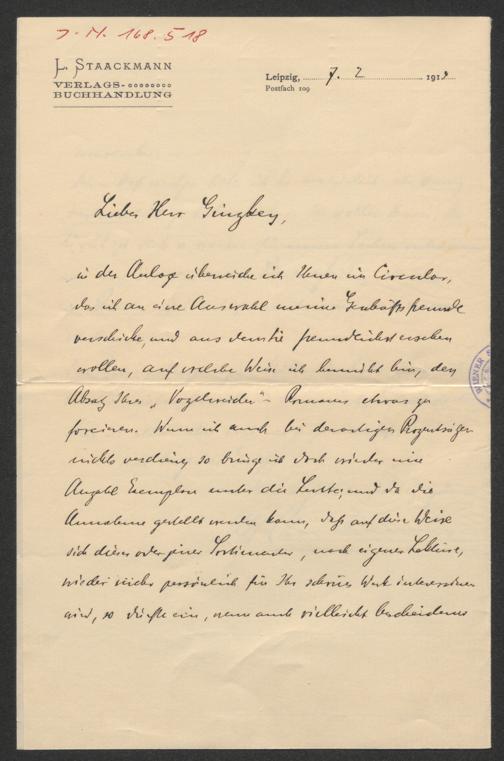 J. N. 168.518
L. STAACKMANN
VERLAGS-
BUCHHANDLUNG
Leipzig, 7. 2 1913
Postfach 109
Lieber Herr Ginzkey,
in der Anlage überreiche ich Ihnen ein Circular,
das ich an eine Auswahl meiner Geschäftsfreunde
verschicke, und aus dem Sie freundlichst ersehen
wollen, auf welche Weise ich bemüht bin, den
Absatz Ihres „Vogelweider"-Romanes etwas zu
forcieren. Wenn ich auch bei derartigen Prozentsätzen
nichts verdiene, so bringe ich doch wieder eine
Anzahl Exemplare unter die Leute, und da die
Annahme gestellt werden kann, daß auf diese Weise
sich dieser oder jener Sortimenter, nach eigener Lektüre,
wieder mehr persönlich für Ihr schönes Werk interessieren
wird, so dürfte ein, wenn auch vielleicht bescheidener
WIENER